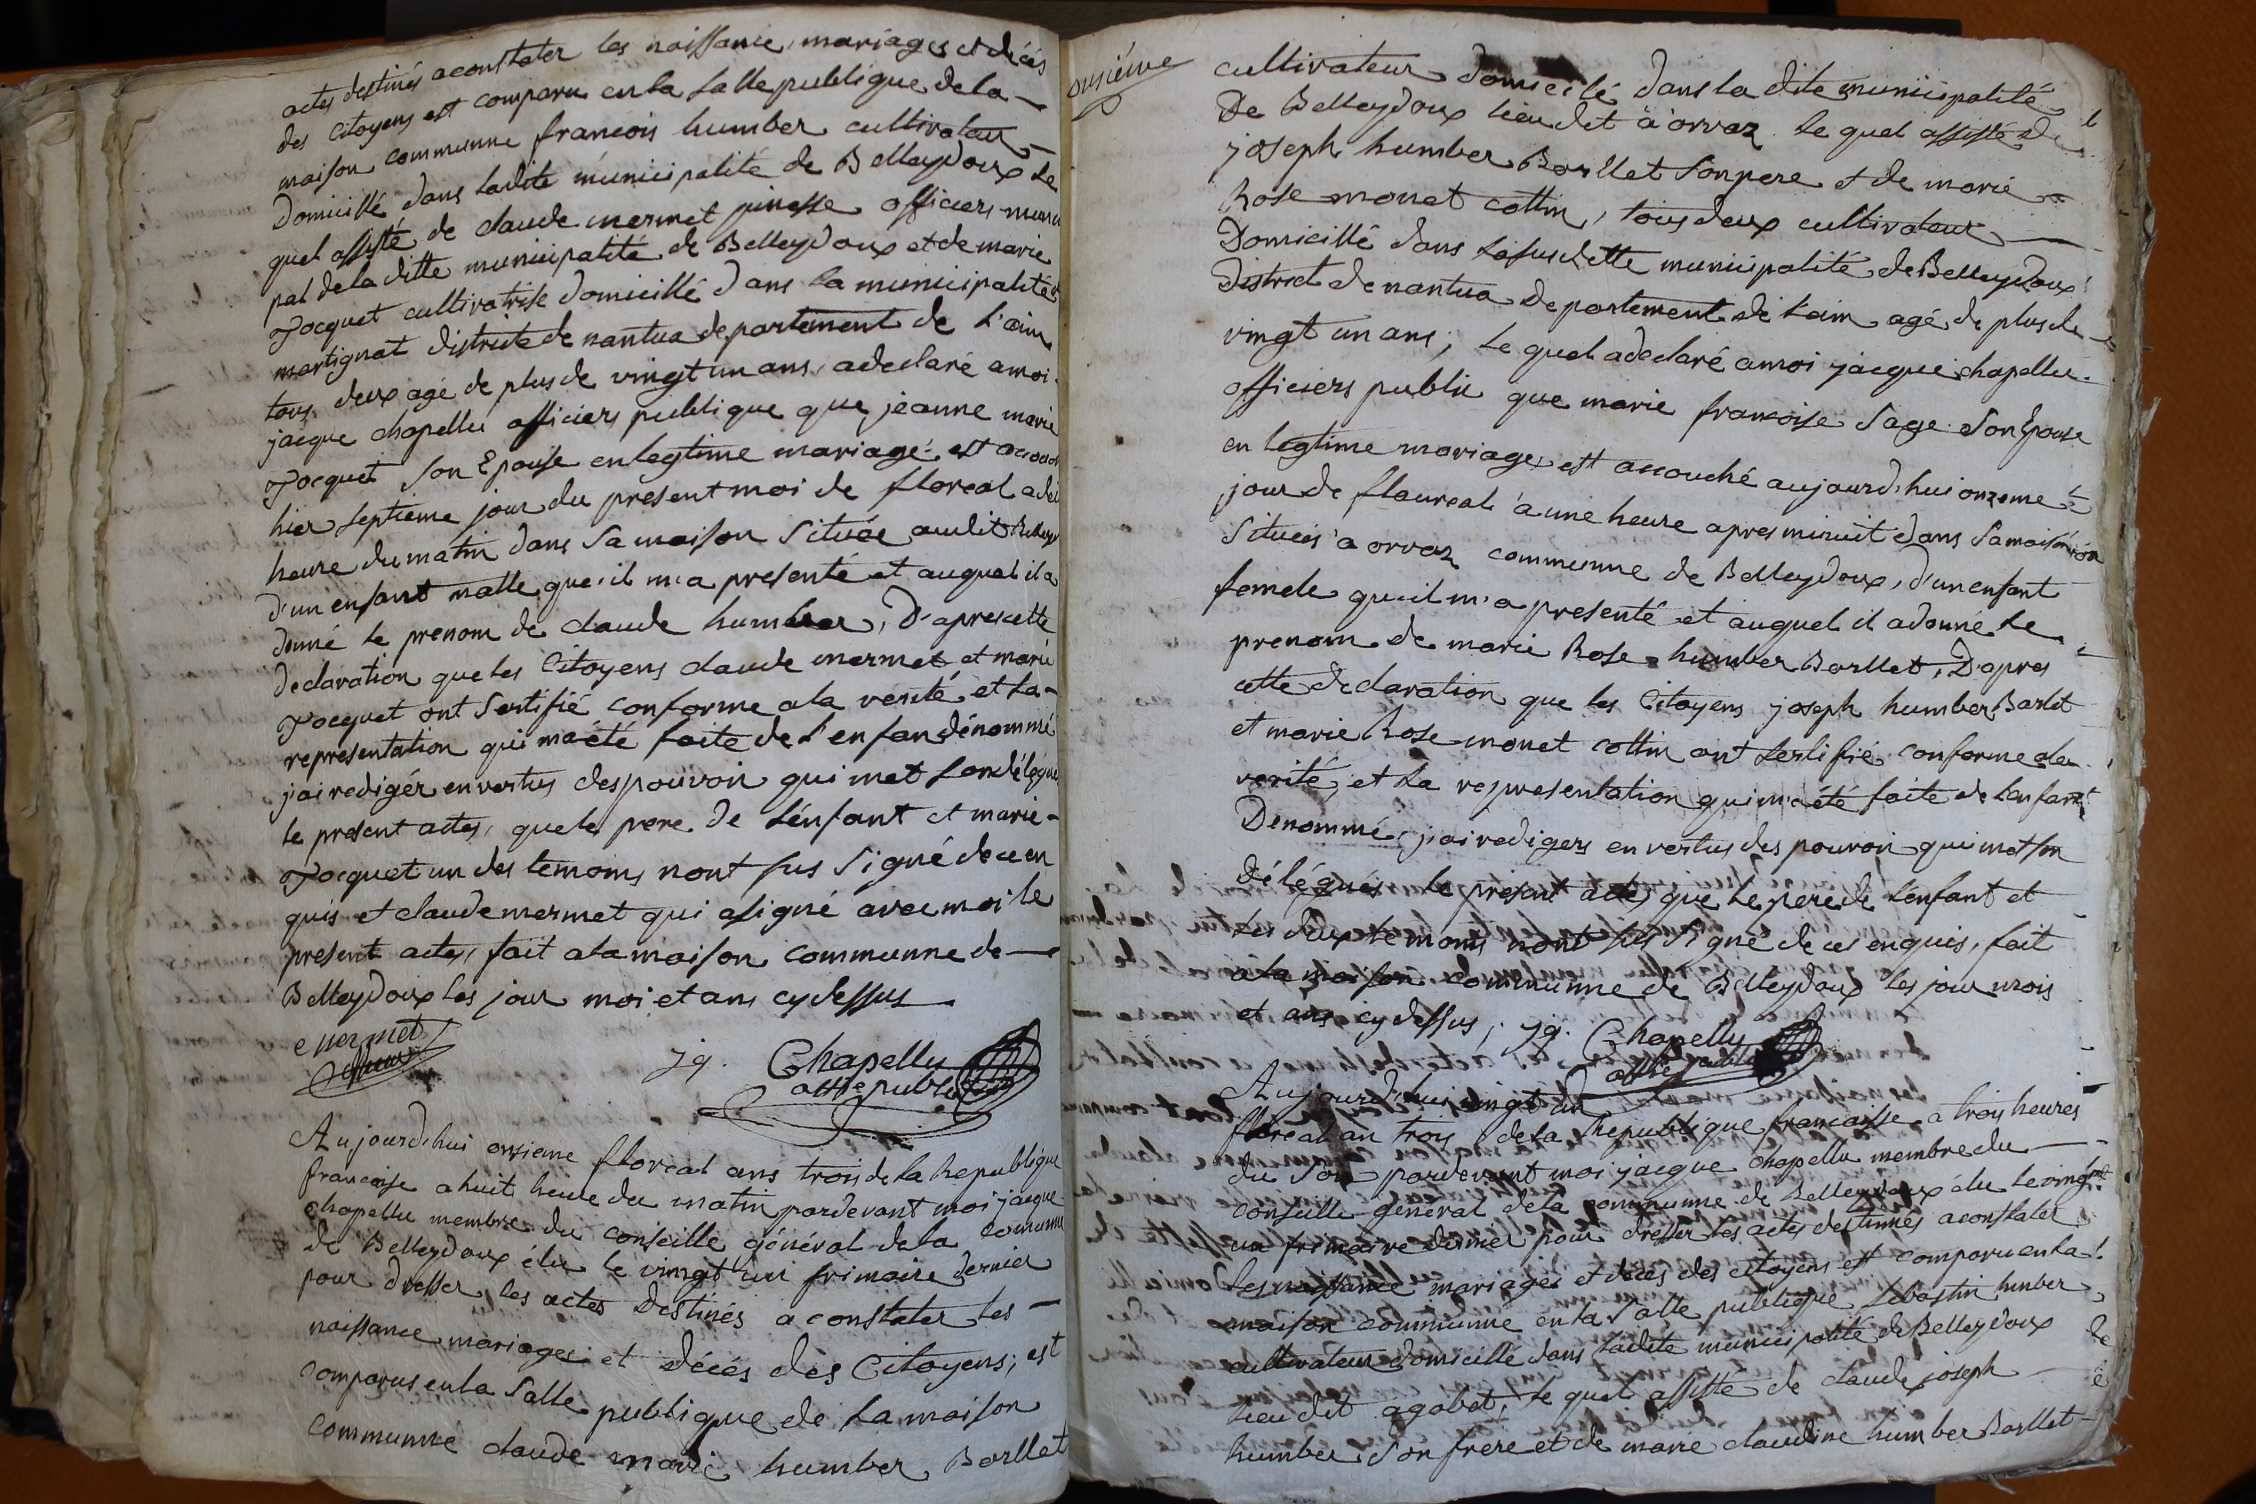 actes destinés aconstater les naissance, mariages et décés
des Citoyens est comparu en la salle publique de la
maison communne francois humber cultivateur
Domicillé dans ladite municipalité de Belleydoux le
quel assisté de claude mermet pinesse officiers muni
pal de la ditte municipalité de Belleydoux et de marie
Jocquet cultivatrise domicillé dans la municipalité
martignat districte de nantua departement de l'ain
tous deux agé de plus de vingt un ans, a declaré a moi
jacque chapellu officiers publique que jeanne marie
Jocquet son Epouse en legtime mariagé est accouch
hier septieme jour du present moi de floreal a dei
heure du matin dans sa maison située audit Belleyd
d'un enfant malle que il m'a presenté et auquel il a
donné le prenom de claude humber, D'apres cette
declaration que les Citoyens claude mermet et marie
Jocquet ont sertifié conforme a la verité et la
representation qui ma été faite de l'enfan dénommé
j'ai rediger en vertus des pouvoir qui met son délégué
le present actes, que le pere de l'énfant et marie
Jocquet un des temoins nont sus signé de ce en
quis et claude mermet qui a signé avec moi le
present actes, fait a la maison communne de
Belleydoux les jour moi et ans cy dessus
mermet
jq. Chapelly
offie publi
Aujourd'hui onsieme floreal ans trois de la Republique
francaise a huit heure du matin pardevant moi jacque
chapellu membre du conseille général de la communne
de Belleydoux élu le vingt un frimaire dernier
pour dresser les actes Destinés a constater les
naissance mariages et décés des Citoyens, est
comparus en la salle publique de la maison
communne claude marie humber Borllet
onsiéme
cultivateur domicilé dans la dite municipalité
De Belleydoux lieu dit a orvaz le quel assisté de
joseph humber Borllet son pere et de marie
Rose monet cottin, tous deux cultivateur
Domicillé dans la susdette municipalité de Belleydoux
District de nantua departement de l'ain agé de plus de
vingt un ans, le quel a declaré a moi jacque chapellu
officiers publie que marie francoise sage son Epouse
en legtime mariage est acouché aujourd'hui onzeme
jour de flaureal a une heure apres minuit dans sa maison
situeés a orvaz communne de Belleydoux, d'un enfant
femele qu'il m'a presenté et auquel il a donné le
prenom de marie Rose humber Borllet, D'apres
cette declaration que les Citoyens joseph humber Barlet
et marie Rose monet cottin ont sertifié conforme a la
verité et la representation qui m'a été faite de l'enfant
Denommé, j'ai redigers en vertus des pouvoir qui met son
Délégués le présent acte, que le pere de l'enfant et
les deux temoins nont sus signé de ces enquis, fait
a la maison communne de Belleydoux les jour mois
et ans cy dessus, jq. Chapelly
offie publi
Aujourd'hui vingt un
floreal an trois de la Republique francaisse a trois heures
du soir pardevant moi jacque chapellu membre du
conseille general de la communne de Belleydoux élu le vingt
un frimaire dernier pour dresser les actes destinés aconstater
les naissance mariages et décés des citoyens est comparu en la
maison communne en la salle publique sebastin humber
cultivateur domicillé dans ladite municipalité de Belleydoux
lieu dit agobet, le quel assisté de claude joseph
humber son frere et de marie claudine humber Borllet